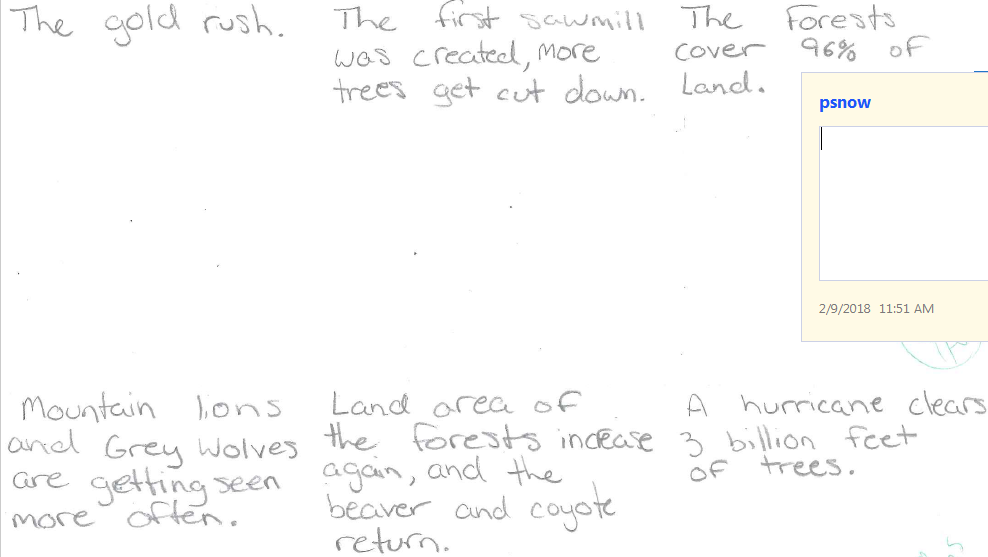 The gold rush.
The first sawmill
was created, more
trees get cut down.
The Forests
cover 96% of
Land.
psnow
2/9/2018 11:51 AM
Mountain lions
and Grey Wolves
are getting seen
more often.
Land area of
the forests increase
again, and the
beaver and coyote
return.
A hurricane clears
3 billion feet
of trees.